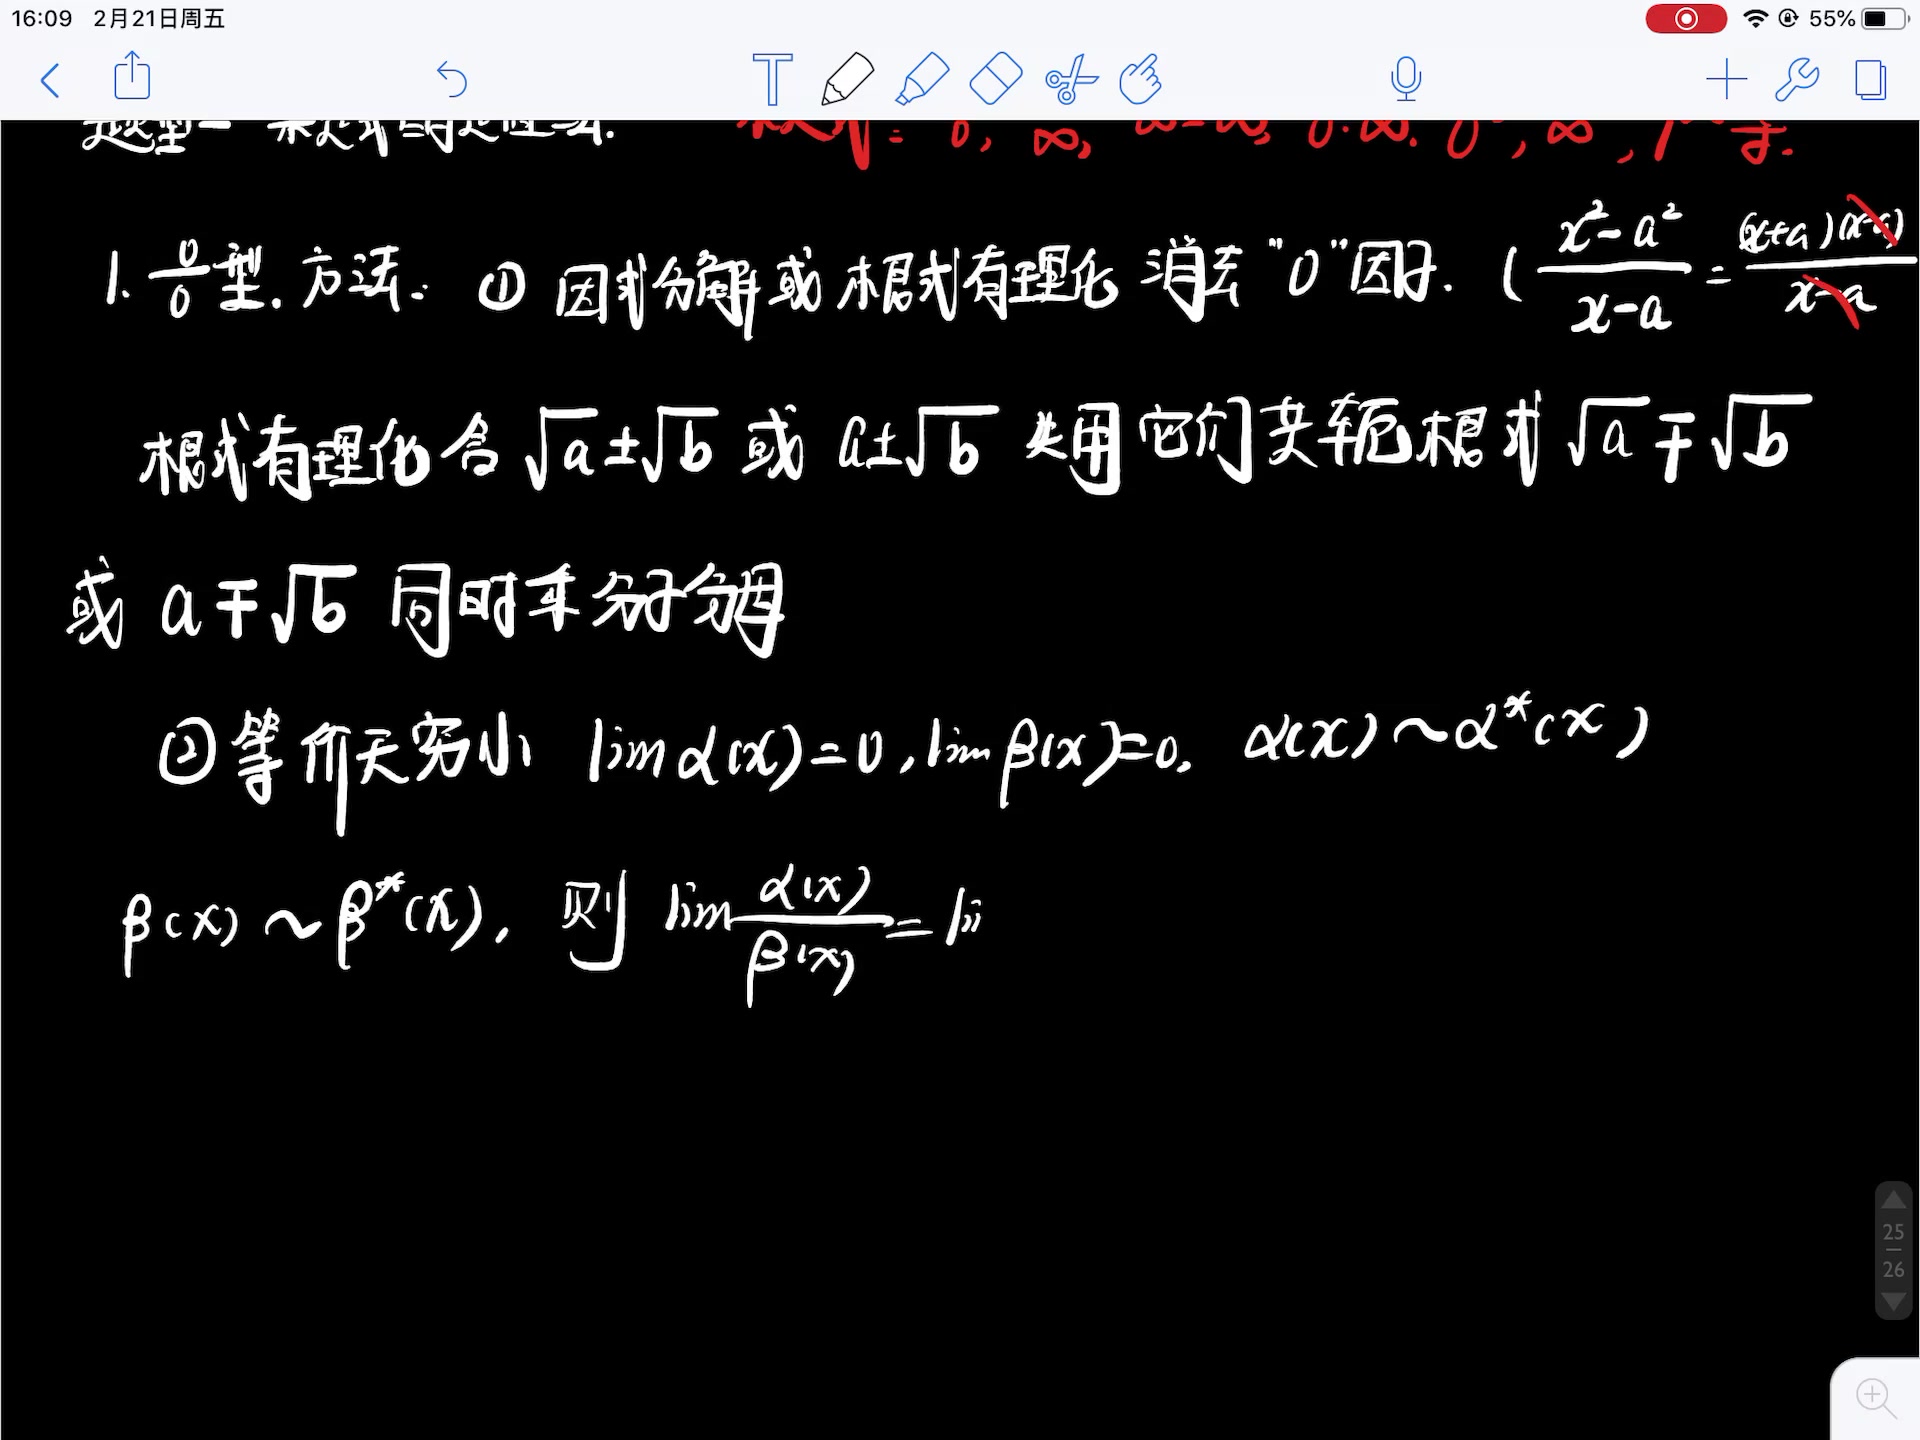 16:09 2月21日周五 55%
1. 0/0 型. 方法: ① 因式分解或根式有理化 消去“0”因子. ( x²-a² / x-a = (x+a)(x-a) / x-a
根式有理化含 √a±√b 或 a±√b 类用它们共轭根式 √a∓√b
或 a∓√b 同时乘分子分母
②等价无穷小 lim α(x)=0, lim β(x)=0. α(x)~α*(x)
β(x)~β*(x), 则 lim α(x)/β(x) = li
25
26